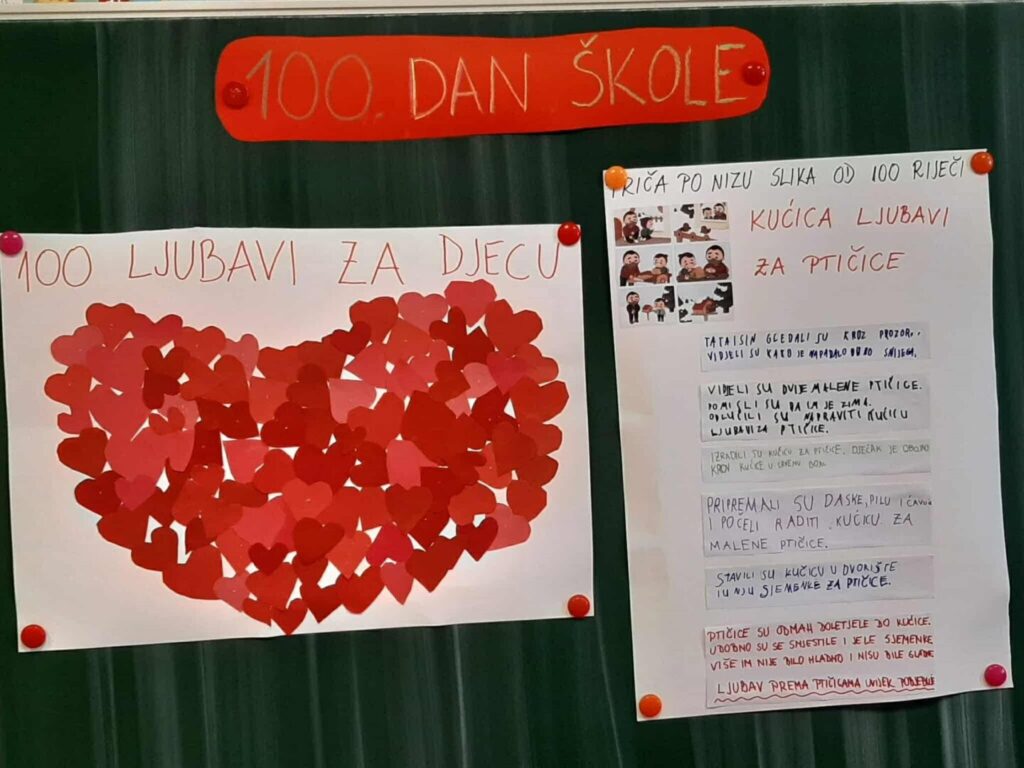 100. DAN ŠKOLE
100 LJUBAVI ZA DJECU
PRIČA PO NIZU SLIKA OD 100 RIJEČI
KUĆICA LJUBAVI
ZA PTIČICE
TATA I SIN GLEDALI SU KROZ PROZOR.
VIDJELI SU KAKO JE NAPADALO SNIJEGA.
VIDJELI SU DVIJE MALENE PTIČICE.
POMISLILI SU DA IM JE ZIMA.
ODLUČILI SU NAPRAVITI KUĆICU
LJUBAVI ZA PTIČICE.
IZRADILI SU KUĆICU ZA PTIČICE. DJEČAK JE OBOJIO
KROV KUĆICE U CRVENU BOJU
PRIPREMALI SU DASKE, PILU I
I POČELI RADITI KUĆICU ZA
MALENE PTIČICE.
STAVILI SU KUĆICU U DVORIŠTE
I U NJU SJEMENKE ZA PTIČICE.
PTIČICE SU ODMAH DOLETJELE DO KUĆICE.
UDOBNO SU SE SMJESTILE I JELE SJEMENKE
VIŠE IM NIJE BILO HLADNO I NISU BILE GLADNE
LJUBAV PREMA PTIČICAMA UVIJEK